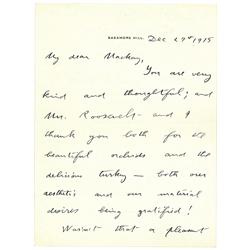 SAGAMORE HILL. Dec 29th 1915
My dear Mackay,
You are very
kind and thoughtful; and
Mrs. Roosevelt and I
thank you both for the
beautiful orchids and the
delicious turkey – both our
aesthetic and our material
desires being gratified!
Wasn't that a pleasant